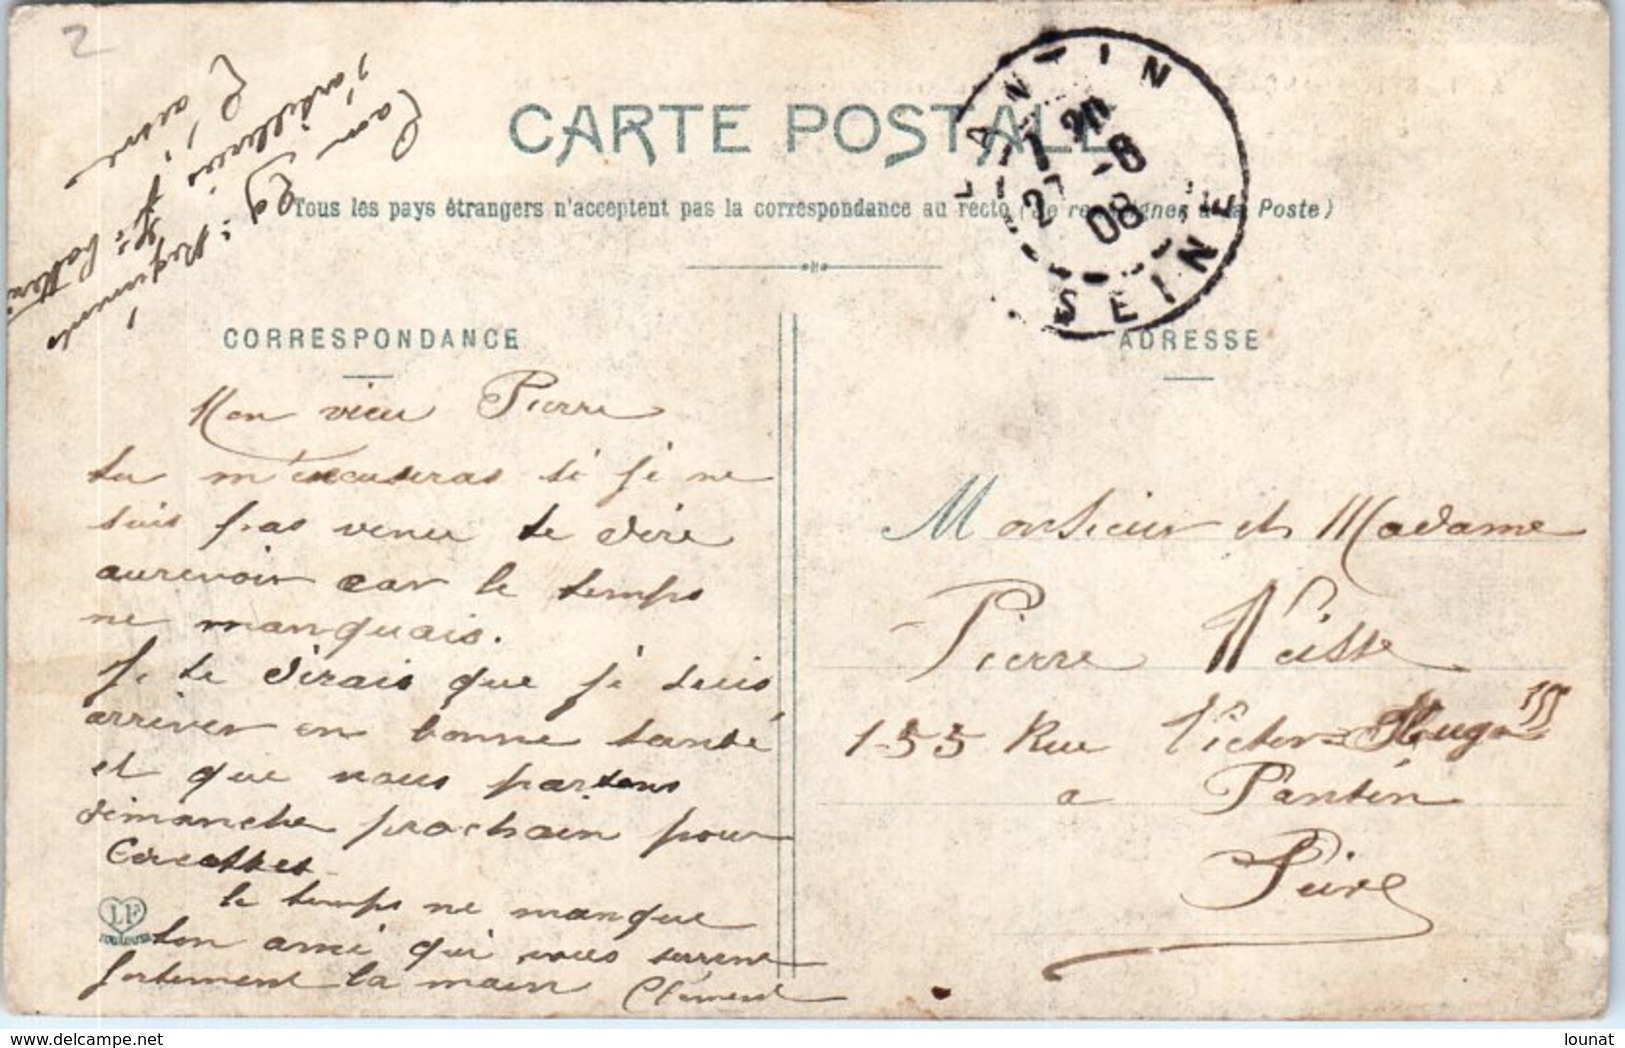 2
CARTE POSTALE
Tous les pays étrangers n'acceptent pas la correspondance au recto (Se renseigner à la Poste)
PANTIN
7 20
27 -8
08
SEINE
l'artillerie
CORRESPONDANCE
ADRESSE
Mon vieu Pierre
tu m'excuseras si je ne
suis pas venu te dire
aurevoir car le temps
ne manquais.
Je te dirais que je suis
arriver en bonne santé
et que nous partons
dimanche prochain pour
le temps ne manque
ton ami qui vous serrent
fortement la main Clément
LF
Monsieur et Madame
Pierre Neisse
155 Rue Victor-Hugo 155
a Pantin
Seine
www.delcampe.net
lounat